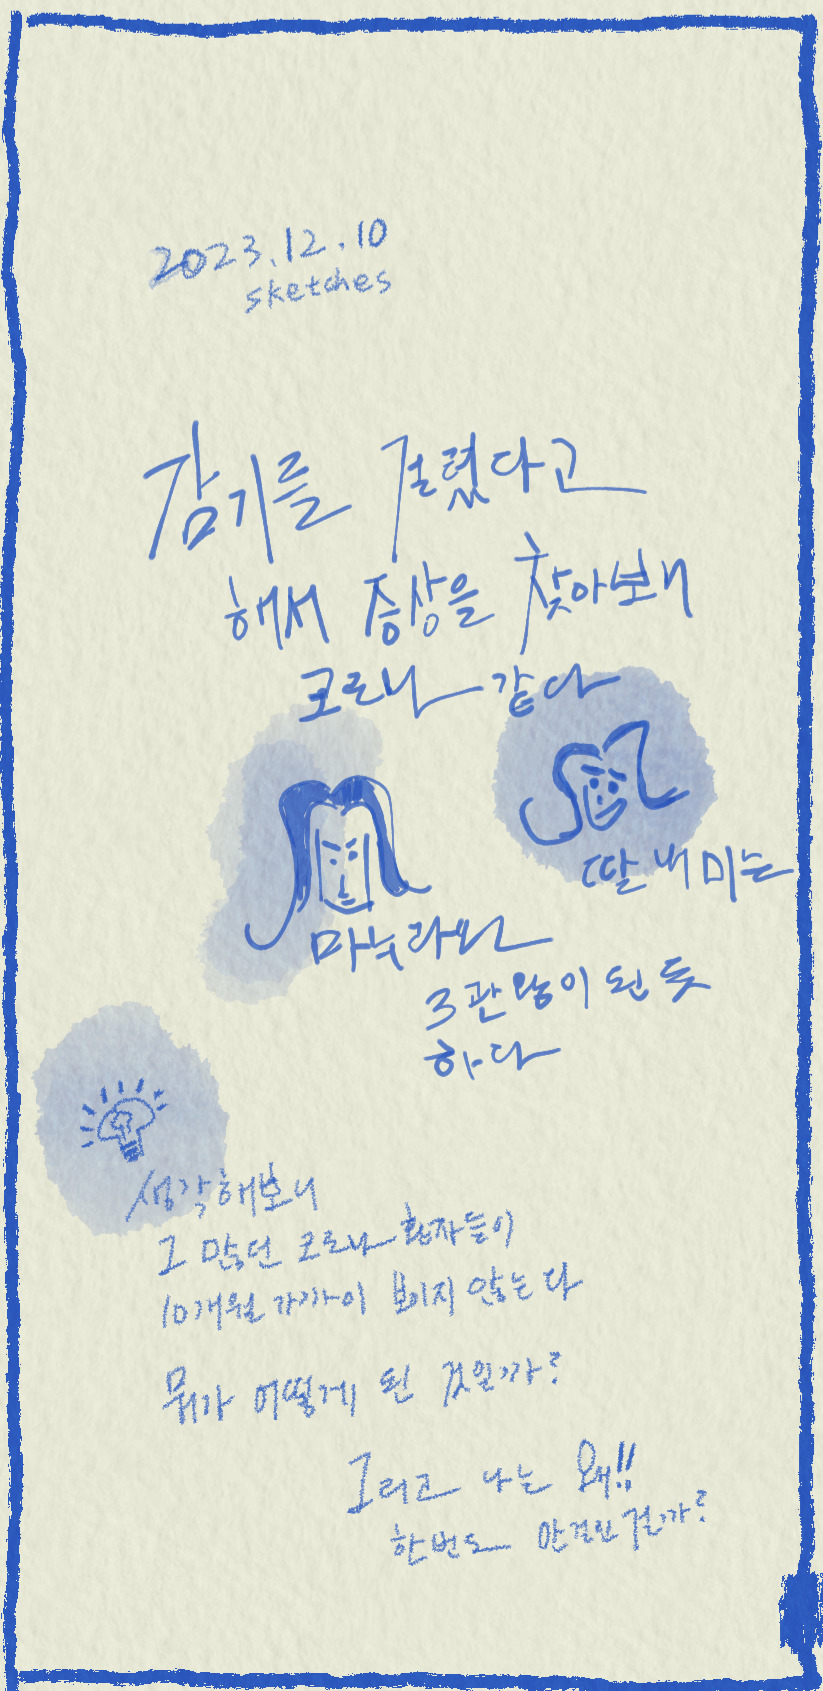 2023.12.10
sketches
감기를 걸렸다고
해서 증상을 찾아보내
코로나 같다
딸내미는
마누라와
3관왕이 된 듯
하다
생각해보니
그 많던 코로나 환자들이
10개월 가까이 보이지 않는다
뭐가 어떻게 된 것일까?
그리고 나는 왜!!
한번도 안걸린걸까?